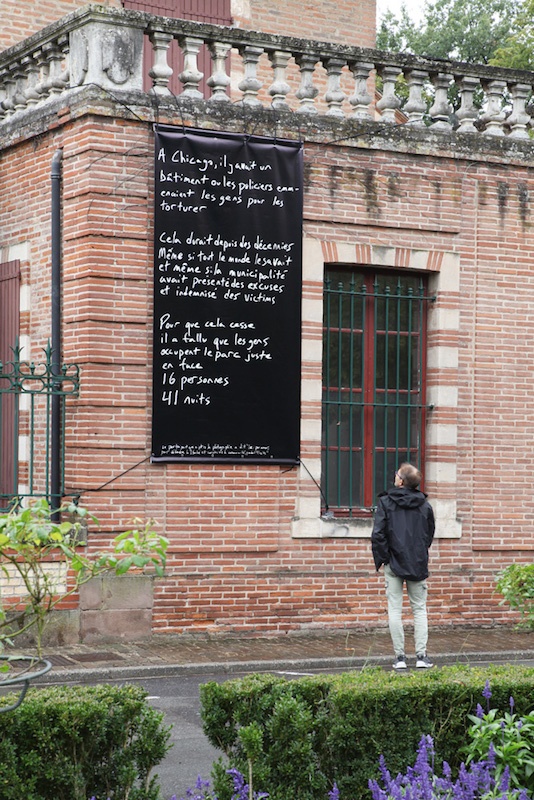 A Chicago, il y avait un
bâtiment ou les policiers emm-
enaient les gens pour les
torturer
Cela durait depuis des décennies
Même si tout le monde le savait
et même si la municipalité
avait presenté des excuses
et indemnisé des victims
Pour que cela cesse
il a fallu que les gens
occupent le parc juste
en face
16 personnes
41 nuits